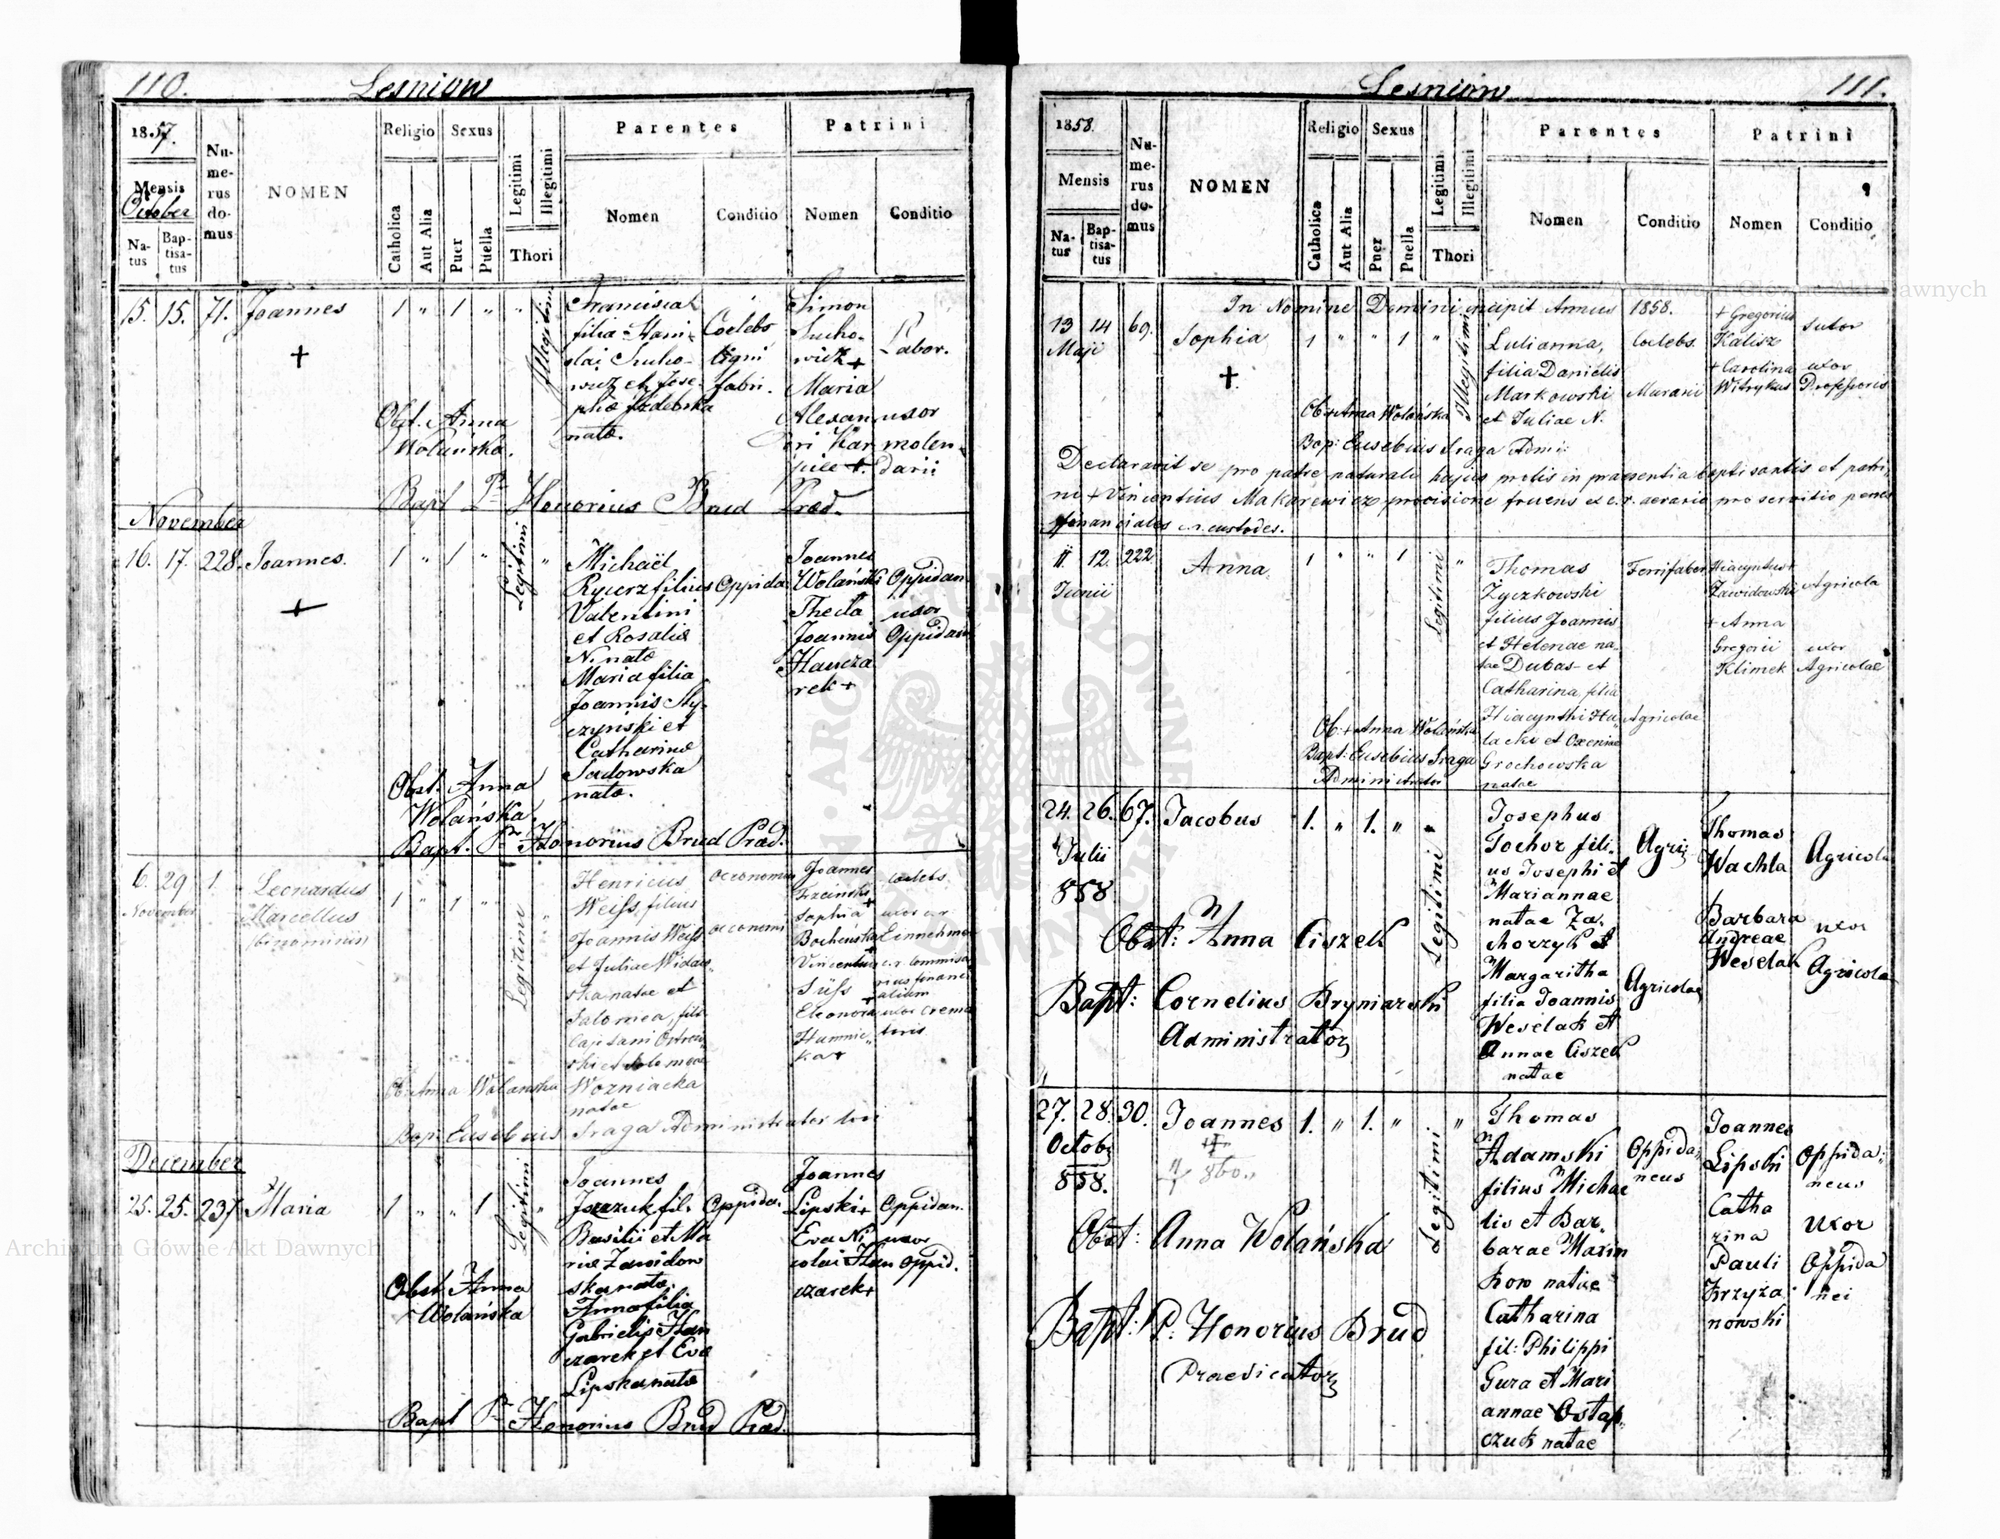 110. Lesniow
1857.
Mensis
October
Na-
tus
Bap-
tisa-
tus
Nu-
me-
rus
do-
mus
NOMEN
Religio
Catholica
Aut Alia
Sexus
Puer
Puella
Legitimi
Illegitimi
Thori
Parentes
Nomen
Conditio
Patrini
Nomen
Conditio
15. 15. 71. Joannes
1 " 1 " "
Illegitimi
filia Stani-
slai Sucho-
wicz et Jose-
nata.
Coelebs
ligni
fabri.
Simon
Sucho-
wicz +
Maria
Alexan
Labor.
uxor
Obst. Anna
Wolańska.
Bapt Pr Honorius Brud Præd.
November
16. 17. 228. Joannes.
1 " 1 "
Legitimi
"
Michaël
Rycerz filius
Valentini
et Rosaliæ
N. natæ
Maria filia
Joannis Sty-
czynski et
Catharinæ
Sadowska
nata.
Oppida.
Joannes
Wolański
Thecla
Joannis
Hancza
rek +
Oppidan
uxor
Oppidani
Obst. Anna
Wolańska.
Bapt. Pr Honorius Brud Præd.
6. 29 1.
November
Leonardus
Marcellus
binominis
1 " 1 " "
Legitimi
Henricus
Weiss, filius
Joannis Weiss
et Juliae Widaw-
ska natae et
Salomea, filia
Wozniacka
natae
oeconomus
oeconomi
Joannes
Sophia +
Bocheńska
Vincentius
Süss
Eleonora
coelebs.
uxor c.r.
Einnehmer
c.r. Commissa
rius financi
alium
Ob: Anna Wolanska
Bap: Eusebius Fraga Administrator loci
December
25. 25. 237. Maria
1 " " 1
Legitimi
"
Joannes
Jazczuk fil.
Basilii et Ma
riæ Zawidow
ska natæ.
Anna filia
Gabrielis Han
czarek et Eva
Lipska natæ
Oppida.
Joannes
Lipski +
Eva Ni
colai Han
czarek +
Oppidan.
uxor
Oppid.
Obst. Anna
Wolańska
Bapt Pr Honorius Brud Præd.
Lesniow 111.
1858.
Mensis
Na-
tus
Bap-
tisa-
tus
Nu-
me-
rus
do-
mus
NOMEN
Religio
Catholica
Aut Alia
Sexus
Puer
Puella
Legitimi
Illegitimi
Thori
Parentes
Nomen
Conditio
Patrini
Nomen
Conditio
In Nomine Domini incipit Annus 1858.
13 14 69.
Maji
Sophia
1 " " 1 "
Illegitimi
Julianna,
filia Danielis
Markowski
et Juliae N.
Coelebs.
Murarii
+ Gregorius
Kalisz
+ Carolina
Witrykus
Sutor
uxor
Professoris
Ob + Anna Wolańska
Bap: Eusebius Fraga Admi:
Declaravit se pro patre naturali hujus prolis in praesentia baptisantis et patri-
ni + Vincentius Makarewicz provisione fruens ex c.r. aerario pro servitio penes
financiales c.r. custodes.
11. 12. 222
Junii
Anna.
1 " " 1
Legitimi
"
Thomas
Zyczkowski
filius Joannis
et Helenae na-
tae Dubas et
Catharina, filia
Hiacynthi Ha
lacki et Oxeniae
Grochowska
natae
Ferrifaber
Agricolae
Hiacynthus
Zawidowski
+ Anna
Gregorii
Klimek
Agricola
uxor
Agricolae
Ob: + Anna Wolańska
Bapt: Eusebius Fraga
Administrator
24. 26. 67. Jacobus
Julii
858
1. " 1. " "
Legitimi
Josephus
Tochor fili-
us Josephi et
Mariannae
natae Za-
chorzyk et
Margaritha
filia Joannis
Weselak et
Annae Ciszek
natae
Agri;
Agricolae
Thomas
Wachla
Barbara
Andreae
Weselak
Agricola
uxor
Agricola
Obst: Anna Ciszek
Bapt: Cornelius Bryniarski
Administrator
27. 28. 30. Joannes
Octob;
858.
860..
1. " 1. " "
Legitimi
Thomas
Adamski
filius Michae
lis et Bar-
barae Maxim
kow natae
Catharina
fil: Philippi
Gura et Mari
annae Ostap-
czuk natae
Oppida-
neus
Joannes
Lipski
Catha
rina
Pauli
Krzyża-
nowski
Oppida-
neus
Uxor
Oppida
nei
Obst: Anna Wolańska
Bapt: P. Honorius Brud
Praedicator
Archiwum Główne Akt Dawnych
Archiwum Główne Akt Dawnych